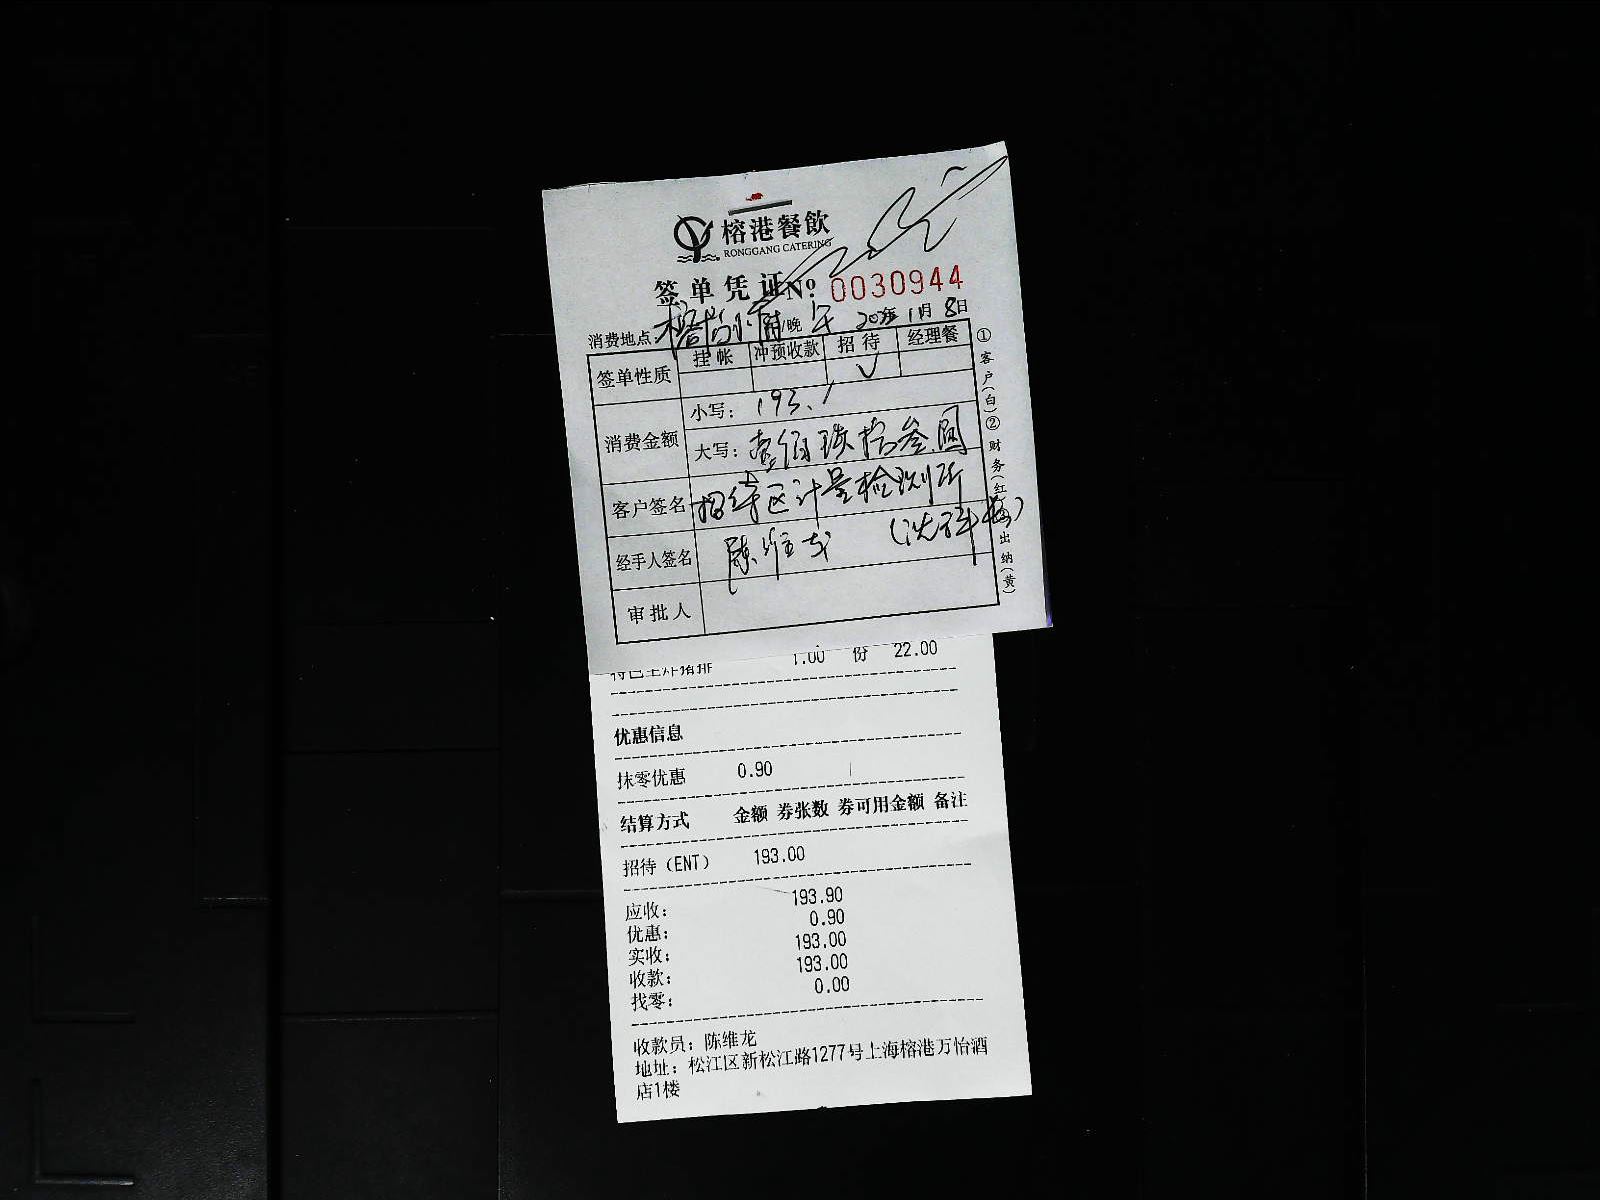 榕港餐飲
RONGGANG CATERING
签单凭证 Nº 0030944
消费地点 /晚 午 年 1月 8日
签单性质 挂帐 冲预收款 招待 经理餐
√
消费金额 小写：193.1
大写：壹佰玖拾叁圆
客户签名 招待区计量检测所
经手人签名 陈维龙
审批人
①客户(白)②财务(红)出纳(黄)
特色主炸猪排 1.00 份 22.00
优惠信息
抹零优惠 0.90
结算方式 金额 券张数 券可用金额 备注
招待（ENT） 193.00
应收： 193.90
优惠： 0.90
实收： 193.00
收款： 193.00
找零： 0.00
收款员：陈维龙
地址：松江区新松江路1277号上海榕港万怡酒
店1楼